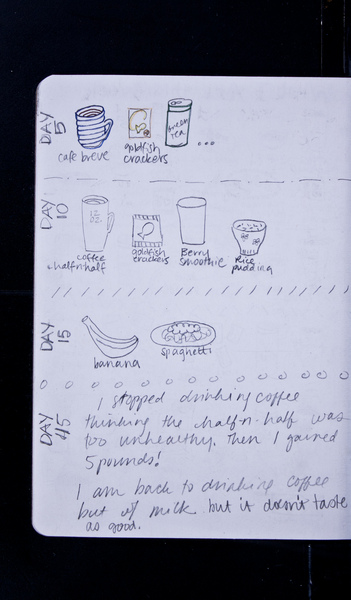 DAY 5
green tea
...
cafe breve
goldfish crackers
DAY 10
12 oz.
coffee + half n half
goldfish crackers
Berry Smoothie
Rice pudding
DAY 15
banana
spaghetti
DAY 45
I stopped drinking coffee
thinking the half-n-half was
too unhealthy. Then I gained
5 pounds!
I am back to drinking coffee
but w/ milk but it doesn't taste
as good.